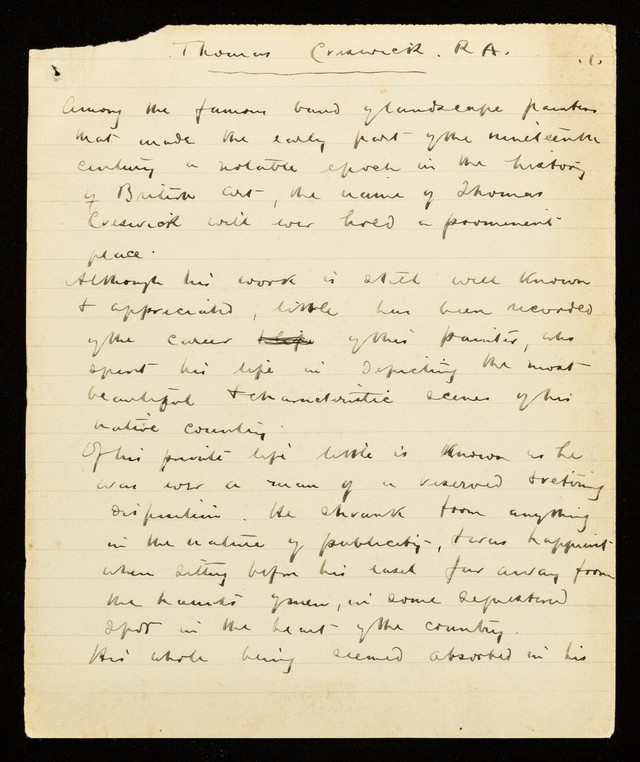 Thomas Creswick. R A. .1.
Among the famous band of landscape painters
that made the early part of the nineteenth
century a notable epoch in the history
of British Art, the name of Thomas
Creswick will ever hold a prominent
place.
Although his work is still well known
& appreciated, little has been recorded
of the career of this painter, who
spent his life in depicting the most
beautiful & characteristic scenes of his
native country.
Of his private life little is known as he
was ever a man of a reserved & retiring
disposition. He shrank from anything
in the nature of publicity, & was happiest
when sitting before his easel far away from
the haunts of men, in some sequestered
spot in the heart of the country.
His whole being seemed absorbed in his